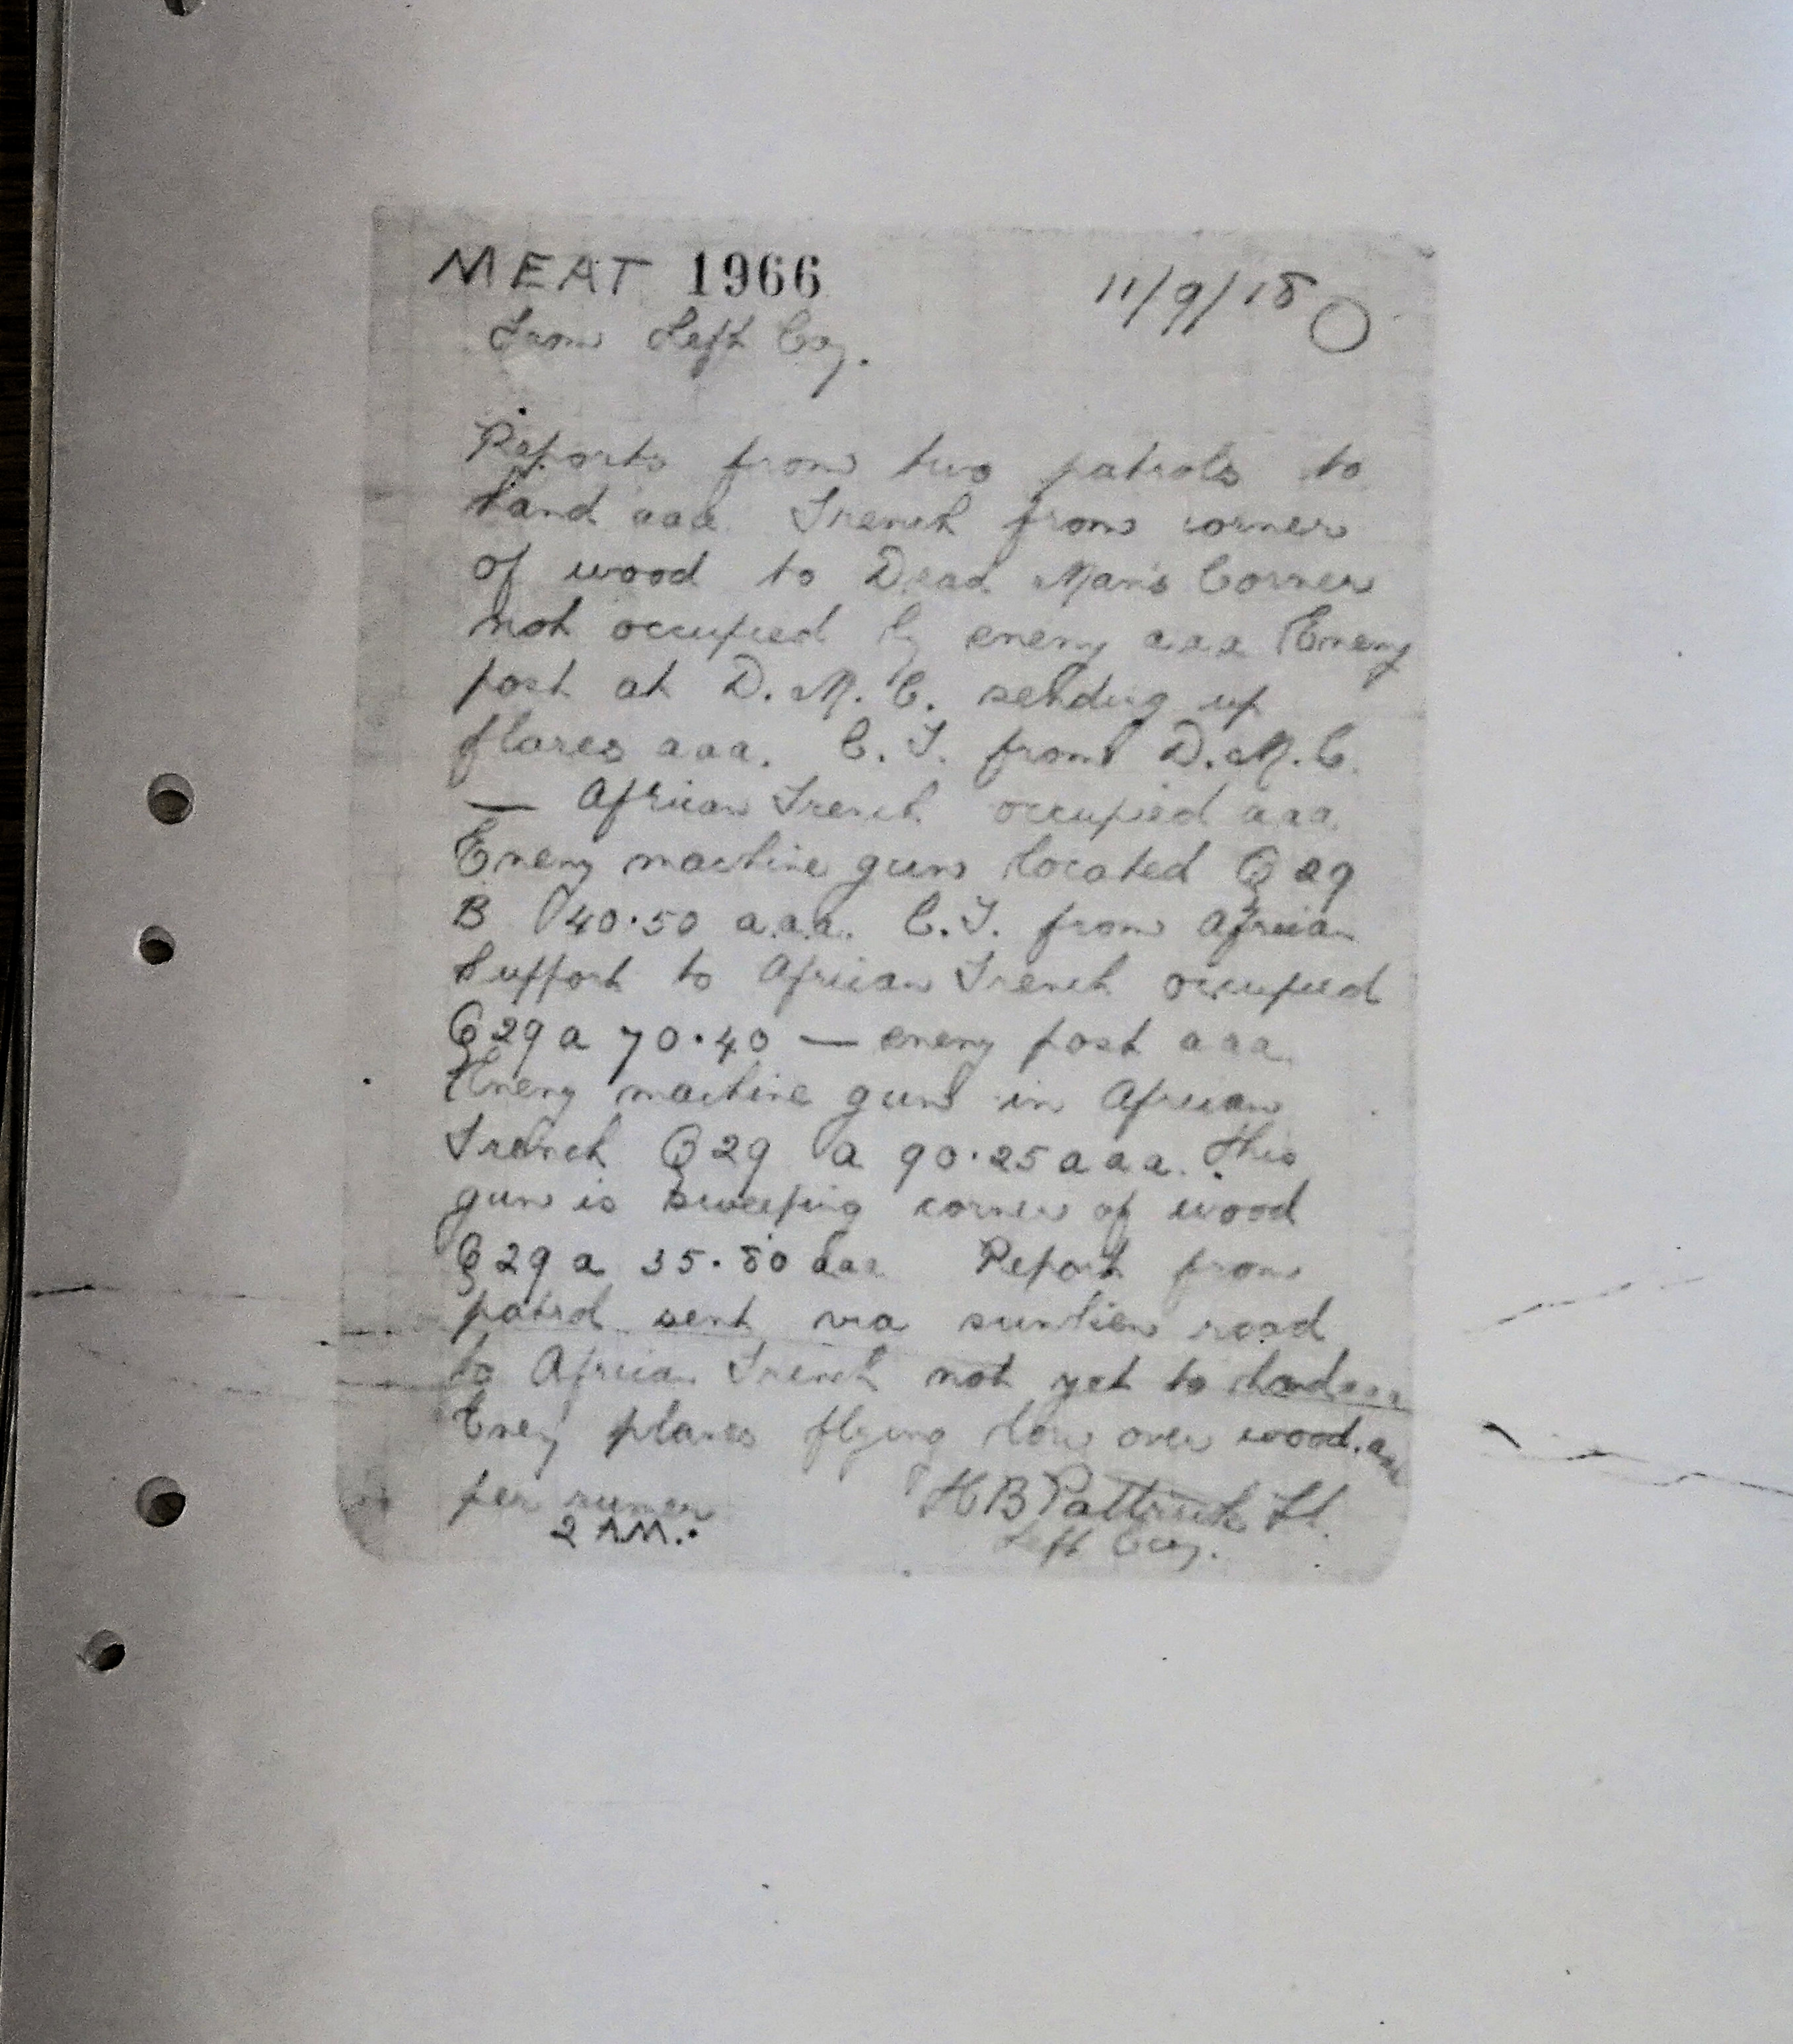 MEAT 1966
11/9/18
From Left Coy.
Reports from two patrols to
hand aaa Trench from corner
of wood to Dead Man's Corner
not occupied by enemy aaa Enemy
post at D.M.C. sending up
flares aaa. C.T. from D.M.C.
— African Trench occupied aaa
Enemy machine gun located Q29
B 40.50 a.a.a. C.T. from African
Support to African Trench occupied
Q29 a 70.40 — enemy post aaa
Enemy machine gun in African
Trench Q29 a 90.25 aaa. This
gun is sweeping corner of wood
Q29 a 35.80 aaa Report from
patrol sent via sunken road
to African Trench not yet to hand aaa
Enemy planes flying low over wood. aaa
per runner
2 AM.
H B Pattrick Lt.
Left Coy.